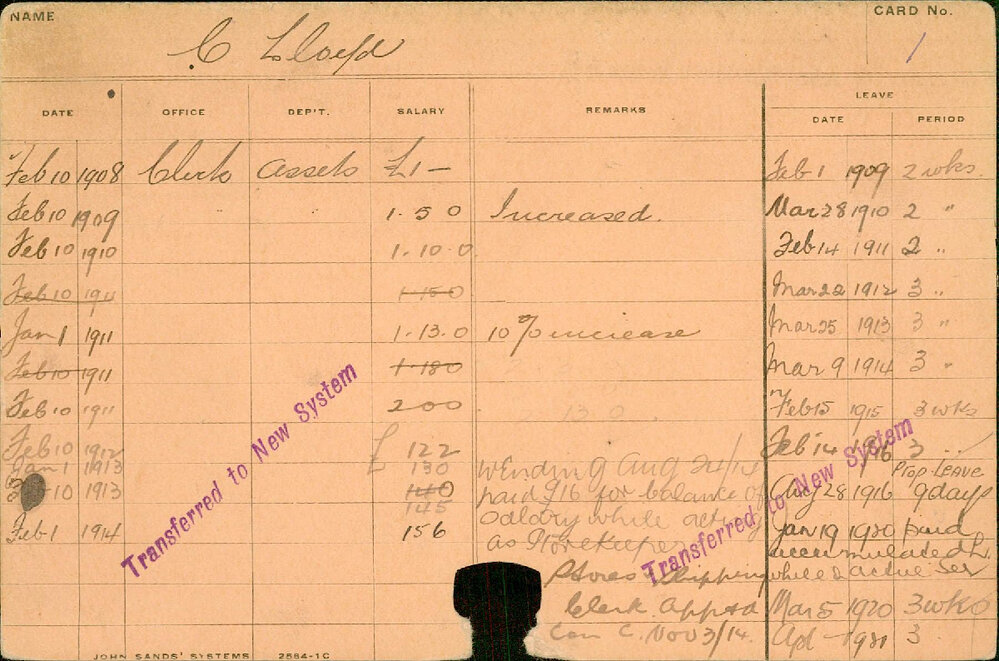 NAME CARD No.
C Lloyd 1
DATE OFFICE DEP'T. SALARY REMARKS LEAVE
DATE PERIOD
Feb 10 1908 Clerk assets £1 – Feb 1 1909 2 wks.
Feb 10 1909 1.5 0 Increased. Mar 28 1910 2 "
Feb 10 1910 1.10.0 Feb 14 1911 2 "
Feb 10 1911 1 15 0 Mar 22 1912 3 "
Jan 1 1911 1.13.0 10% increase Mar 25 1913 3 "
Feb 10 1911 1 18 0 Mar 9 1914 3 "
Feb 10 1911 2 0 0 13 0 Feb 15 1915 3 wks
Feb 10 1912 £ 122 Feb 14 1916 3 "
Jan 1 1913 £ 130 W Ending Aug 24/14 Prop Leave
10 1913 140 paid £16 for balance of Aug 28 1916 9 days
145 salary while acting
Feb 1 1914 156 as Storekeeper Jan 19 1920 paid
accumulated L.
Stores & Shipping while on active Ser
Clerk. Apptd Mar 5 1920 3 wks
Com C. Nov 3/14. Apl – 1921 3
Transferred to New System
Transferred to New System
JOHN SANDS' SYSTEMS 2584-1C